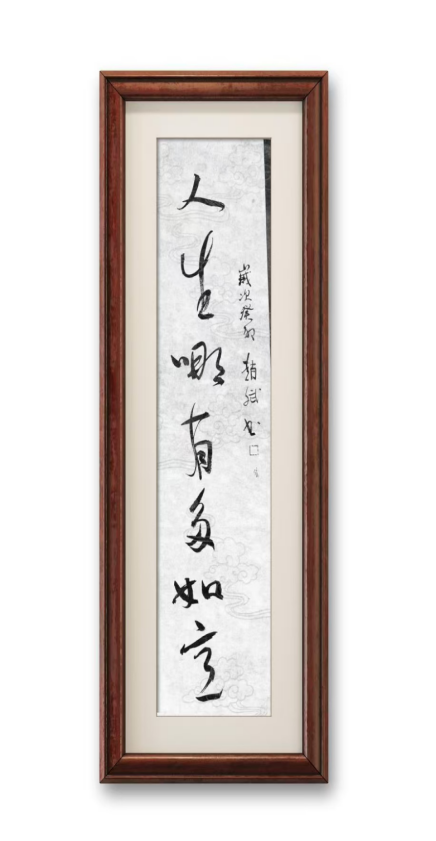 人生哪有多如意
歲次癸卯 趙斌书